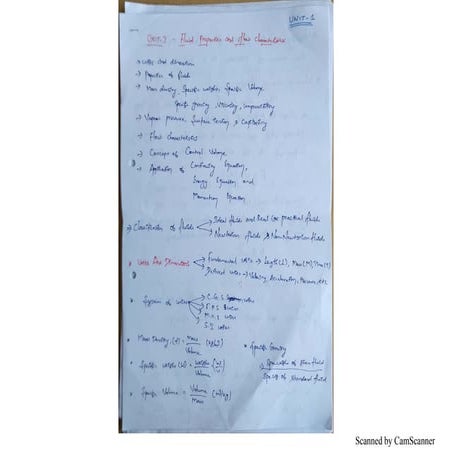 UNIT-1
Unit-I - Fluid Properties and flow characteristics
→ Units and dimensions
→ Properties of fluids
→ Mass density, Specific weight, Specific Volume,
Specific gravity, Viscosity, compressibility
→ Vapour pressure, Surface tension & Capillarity
→ Flow characteristics
→ Concept of Control Volume
→ Application of Continuity Equation,
Energy Equation and
Momentum Equation
→ Classification of fluids → Ideal fluids and Real (or) practical fluid
→ Newtonian fluids & Non-Newtonian fluids
Units and Dimensions → Fundamental units → Length (L), Mass (M), Time (T)
→ Derived units → Velocity, Acceleration, Pressure, etc
→ System of units → C.G.S units
→ F.P.S units
→ M.K.S units
→ S.I units
• Mass Density = Mass / Volume (kg/m³)
• Specific weight (w) = weight / Volume
• Specific Gravity
= Sp. weight of fluid / Sp. weight of Standard fluid
• Specific Volume = Volume / Mass (m³/kg)
Scanned by CamScanner